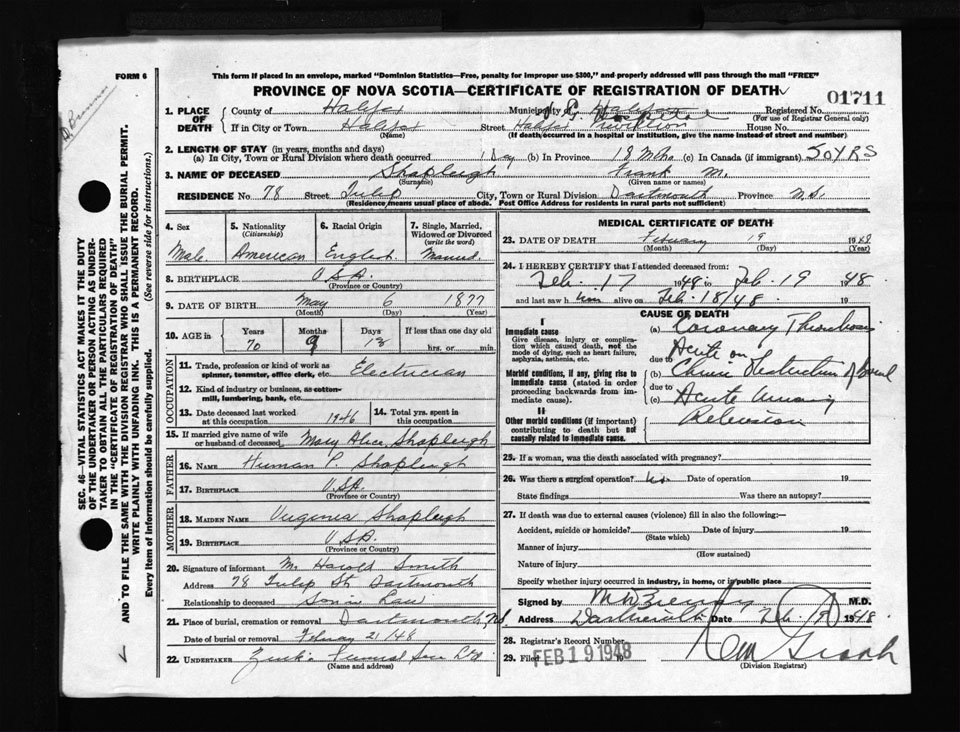 FORM 6
This form if placed in an envelope, marked "Dominion Statistics—Free, penalty for improper use $300," and properly addressed will pass through the mail "FREE"
PROVINCE OF NOVA SCOTIA—CERTIFICATE OF REGISTRATION OF DEATH
01711
1. PLACE OF DEATH County of Halifax Municipality of Halifax Registered No.
(For use of Registrar General only)
If in City or Town Halifax Street House No.
(Name) (If death occurred in a hospital or institution, give the name instead of street and number)
2. LENGTH OF STAY (in years, months and days)
(a) In City, Town or Rural Division where death occurred 1 day (b) In Province 18 Mths (c) In Canada (if immigrant) 50 YRS
3. NAME OF DECEASED Shapleigh Frank M.
(Surname) (Given name or names)
RESIDENCE No 78 Street Tulip City, Town or Rural Division Dartmouth Province N.S.
(Residence means usual place of abode. Post Office Address for residents in rural parts not sufficient)
4. Sex 5. Nationality (Citizenship) 6. Racial Origin 7. Single, Married, Widowed or Divorced (write the word)
Male American English Married
8. BIRTHPLACE U.S.A.
(Province or Country)
9. DATE OF BIRTH May 6 1877
(Month) (Day) (Year)
10. AGE in Years Months Days If less than one day old
70 9 13 hrs. or min.
OCCUPATION
11. Trade, profession or kind of work as spinner, teamster, office clerk, etc. Electrician
12. Kind of industry or business, as cotton-mill, lumbering, bank, etc.
13. Date deceased last worked at this occupation 1946 14. Total yrs. spent in this occupation
15. If married give name of wife or husband of deceased Mary Alice Shapleigh
FATHER
16. NAME P. Shapleigh
17. BIRTHPLACE U.S.A.
(Province or Country)
MOTHER
18. MAIDEN NAME Virginia Shapleigh
19. BIRTHPLACE U.S.A.
(Province or Country)
20. Signature of informant Mr. Harold Smith
Address 78 Tulip St. Dartmouth
Relationship to deceased Son in Law
21. Place of burial, cremation or removal Dartmouth, N.S.
Date of burial or removal February 21/48
22. UNDERTAKER Zink's Funeral Ltd
(Name and address)
MEDICAL CERTIFICATE OF DEATH
23. DATE OF DEATH February 19 1948
(Month) (Day)
24. I HEREBY CERTIFY that I attended deceased from:
Feb. 17 1948 to Feb. 19 1948
and last saw him alive on Feb. 18/48 19
CAUSE OF DEATH
I
Immediate cause
Give disease, injury or complication which caused death, not the mode of dying, such as heart failure, asphyxia, asthenia, etc.
(a) Coronary Thrombosis
due to Acute on
Morbid conditions, if any, giving rise to immediate cause (stated in order proceeding backwards from immediate cause).
(b) Chronic Obstruction of Bowel
due to
(c) Acute Urinary
Retension
II
Other morbid conditions (if important) contributing to death but not causally related to immediate cause.
25. If a woman, was the death associated with pregnancy?
26. Was there a surgical operation? No Date of operation 19
State findings Was there an autopsy?
27. If death was due to external causes (violence) fill in also the following:—
Accident, suicide or homicide? Date of injury 19
(State which)
Manner of injury
(How sustained)
Nature of injury
Specify whether injury occurred in industry, in home, or in public place
Signed by M.D.
Address Dartmouth Date Feb. 19 1948
28. Registrar's Record Number
29. Filed FEB 19 1948
(Division Registrar)
SEC. 46—VITAL STATISTICS ACT MAKES IT THE DUTY
OF THE UNDERTAKER OR PERSON ACTING AS UNDER-
TAKER TO OBTAIN ALL THE PARTICULARS REQUIRED
IN THE "CERTIFICATE OF REGISTRATION OF DEATH"
AND TO FILE THE SAME WITH THE DIVISION REGISTRAR WHO SHALL ISSUE THE BURIAL PERMIT.
WRITE PLAINLY WITH UNFADING INK. THIS IS A PERMANENT RECORD.
Every item of information should be carefully supplied. (See reverse side for instructions.)